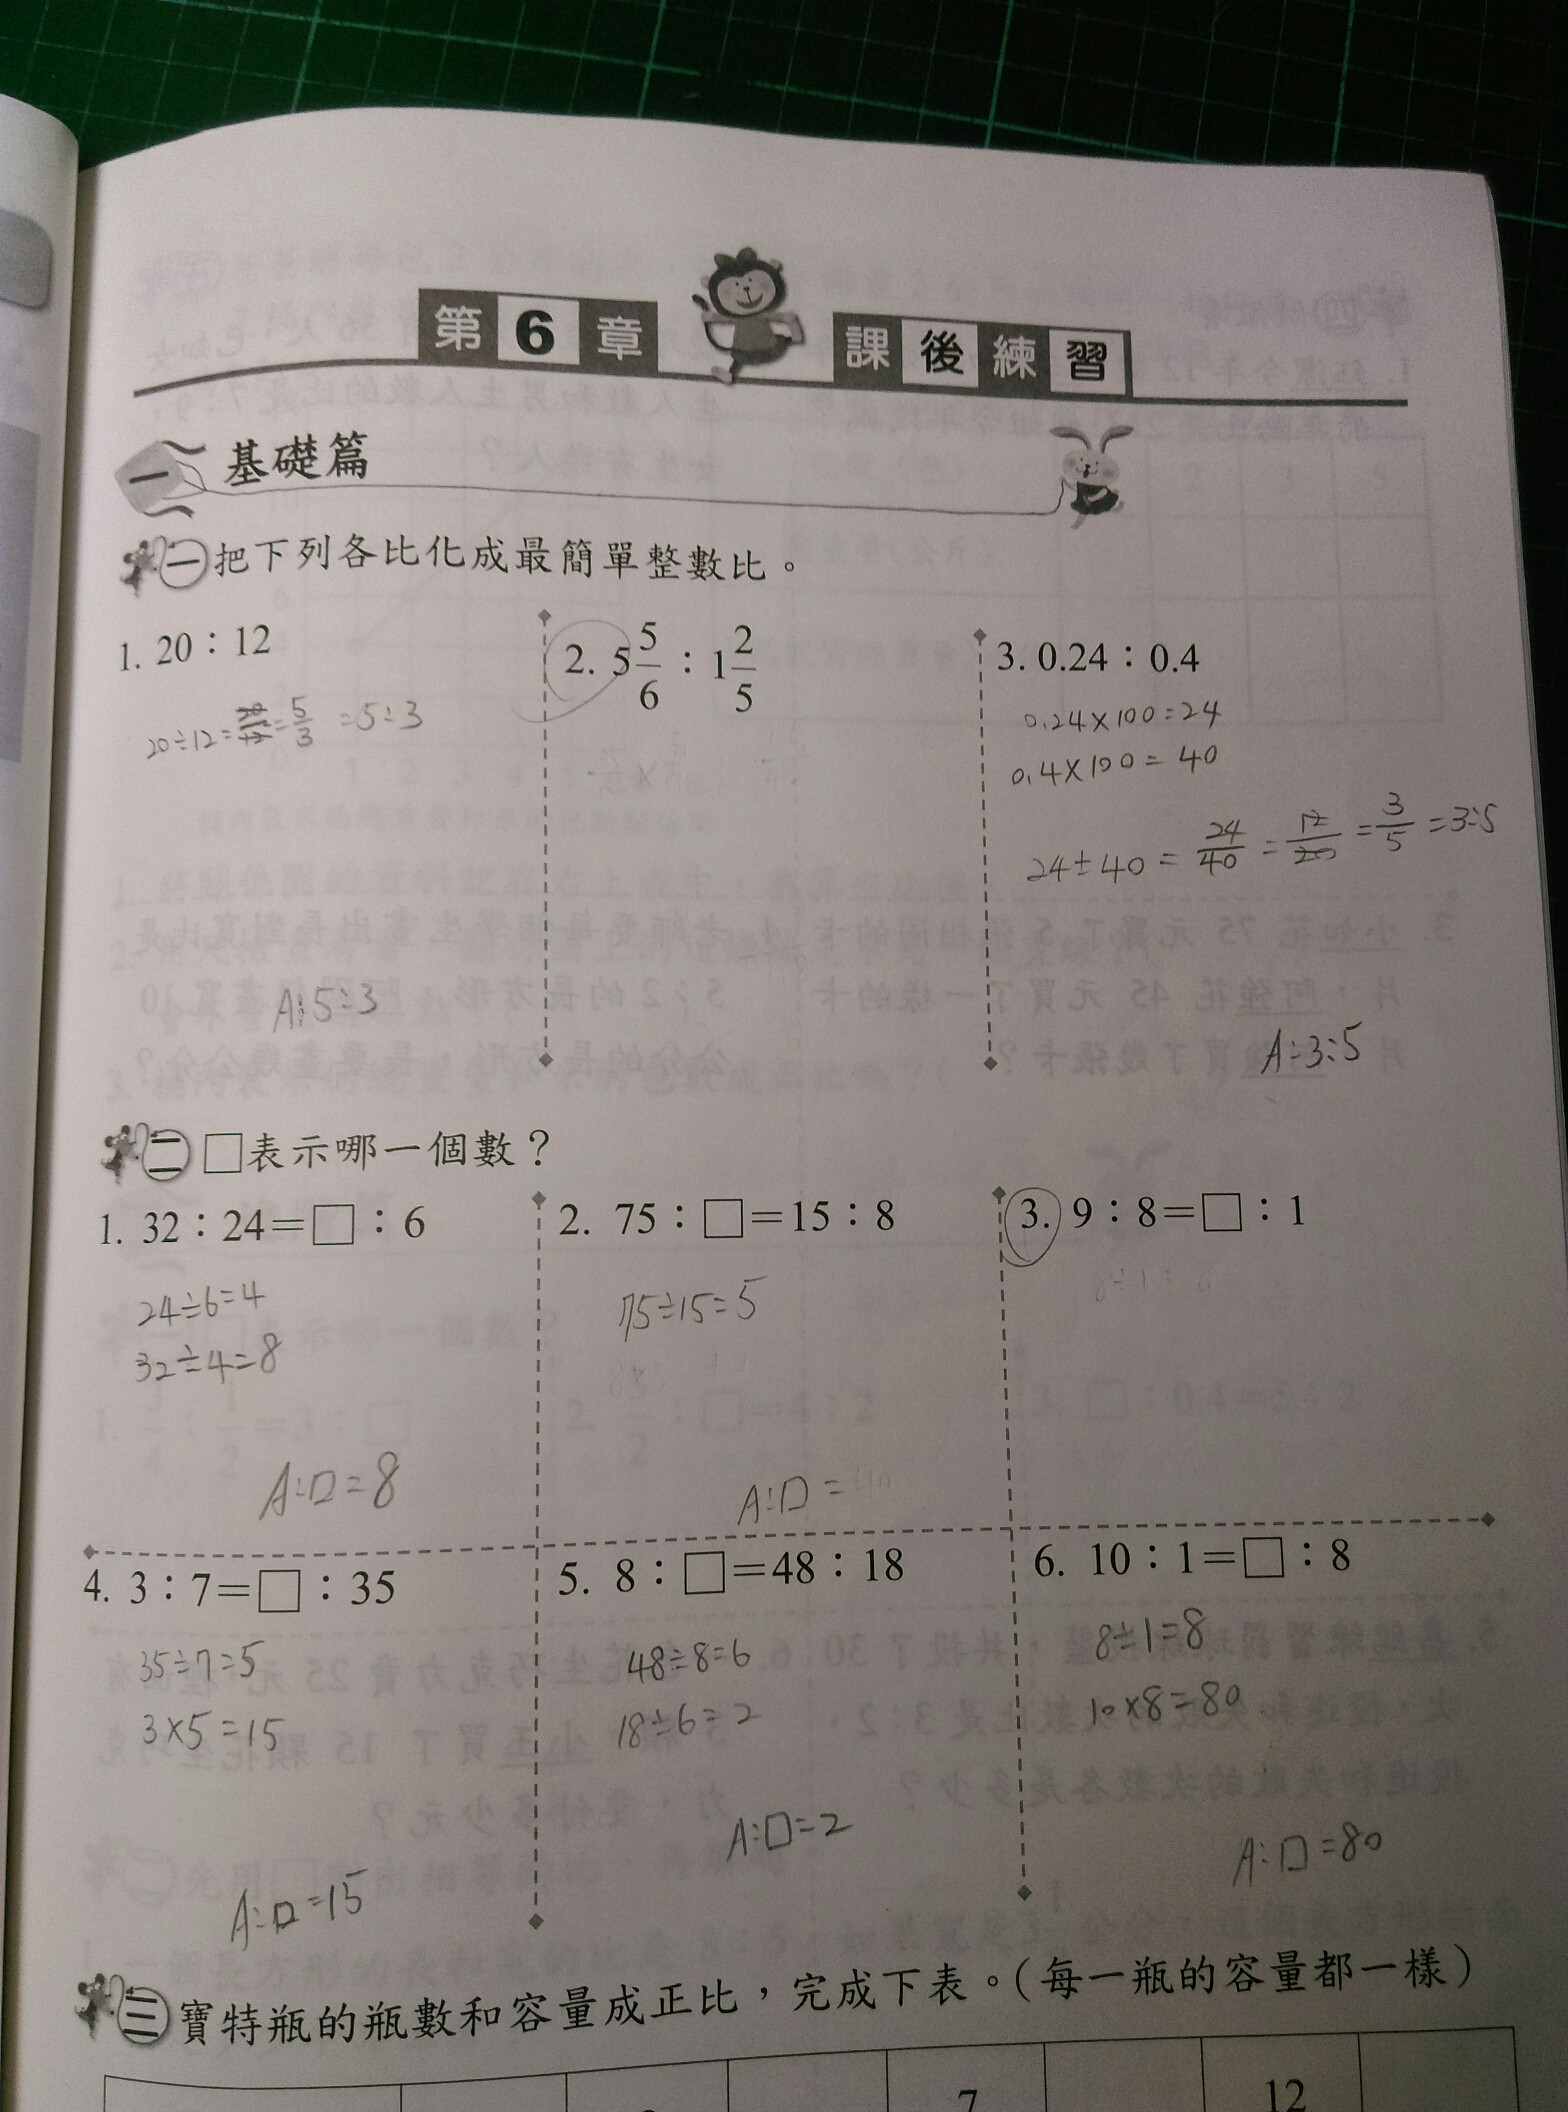 第6章 課後練習
一 基礎篇
㊀把下列各比化成最簡單整數比。
1. 20：12
20÷12= =5/3 =5:3
A:5:3
2. 5 5/6：1 2/5
3. 0.24：0.4
0.24×100=24
0.4×100=40
24÷40=24/40=12/20=3/5=3:5
A:3:5
㊁□表示哪一個數？
1. 32：24=□：6
24÷6=4
32÷4=8
A:□=8
2. 75：□=15：8
75÷15=5
A:□=
3. 9：8=□：1
8÷1=
4. 3：7=□：35
35÷7=5
3×5=15
A:□=15
5. 8：□=48：18
48÷8=6
18÷6=2
A:□=2
6. 10：1=□：8
8÷1=8
10×8=80
A:□=80
㊂寶特瓶的瓶數和容量成正比，完成下表。(每一瓶的容量都一樣)
7 12